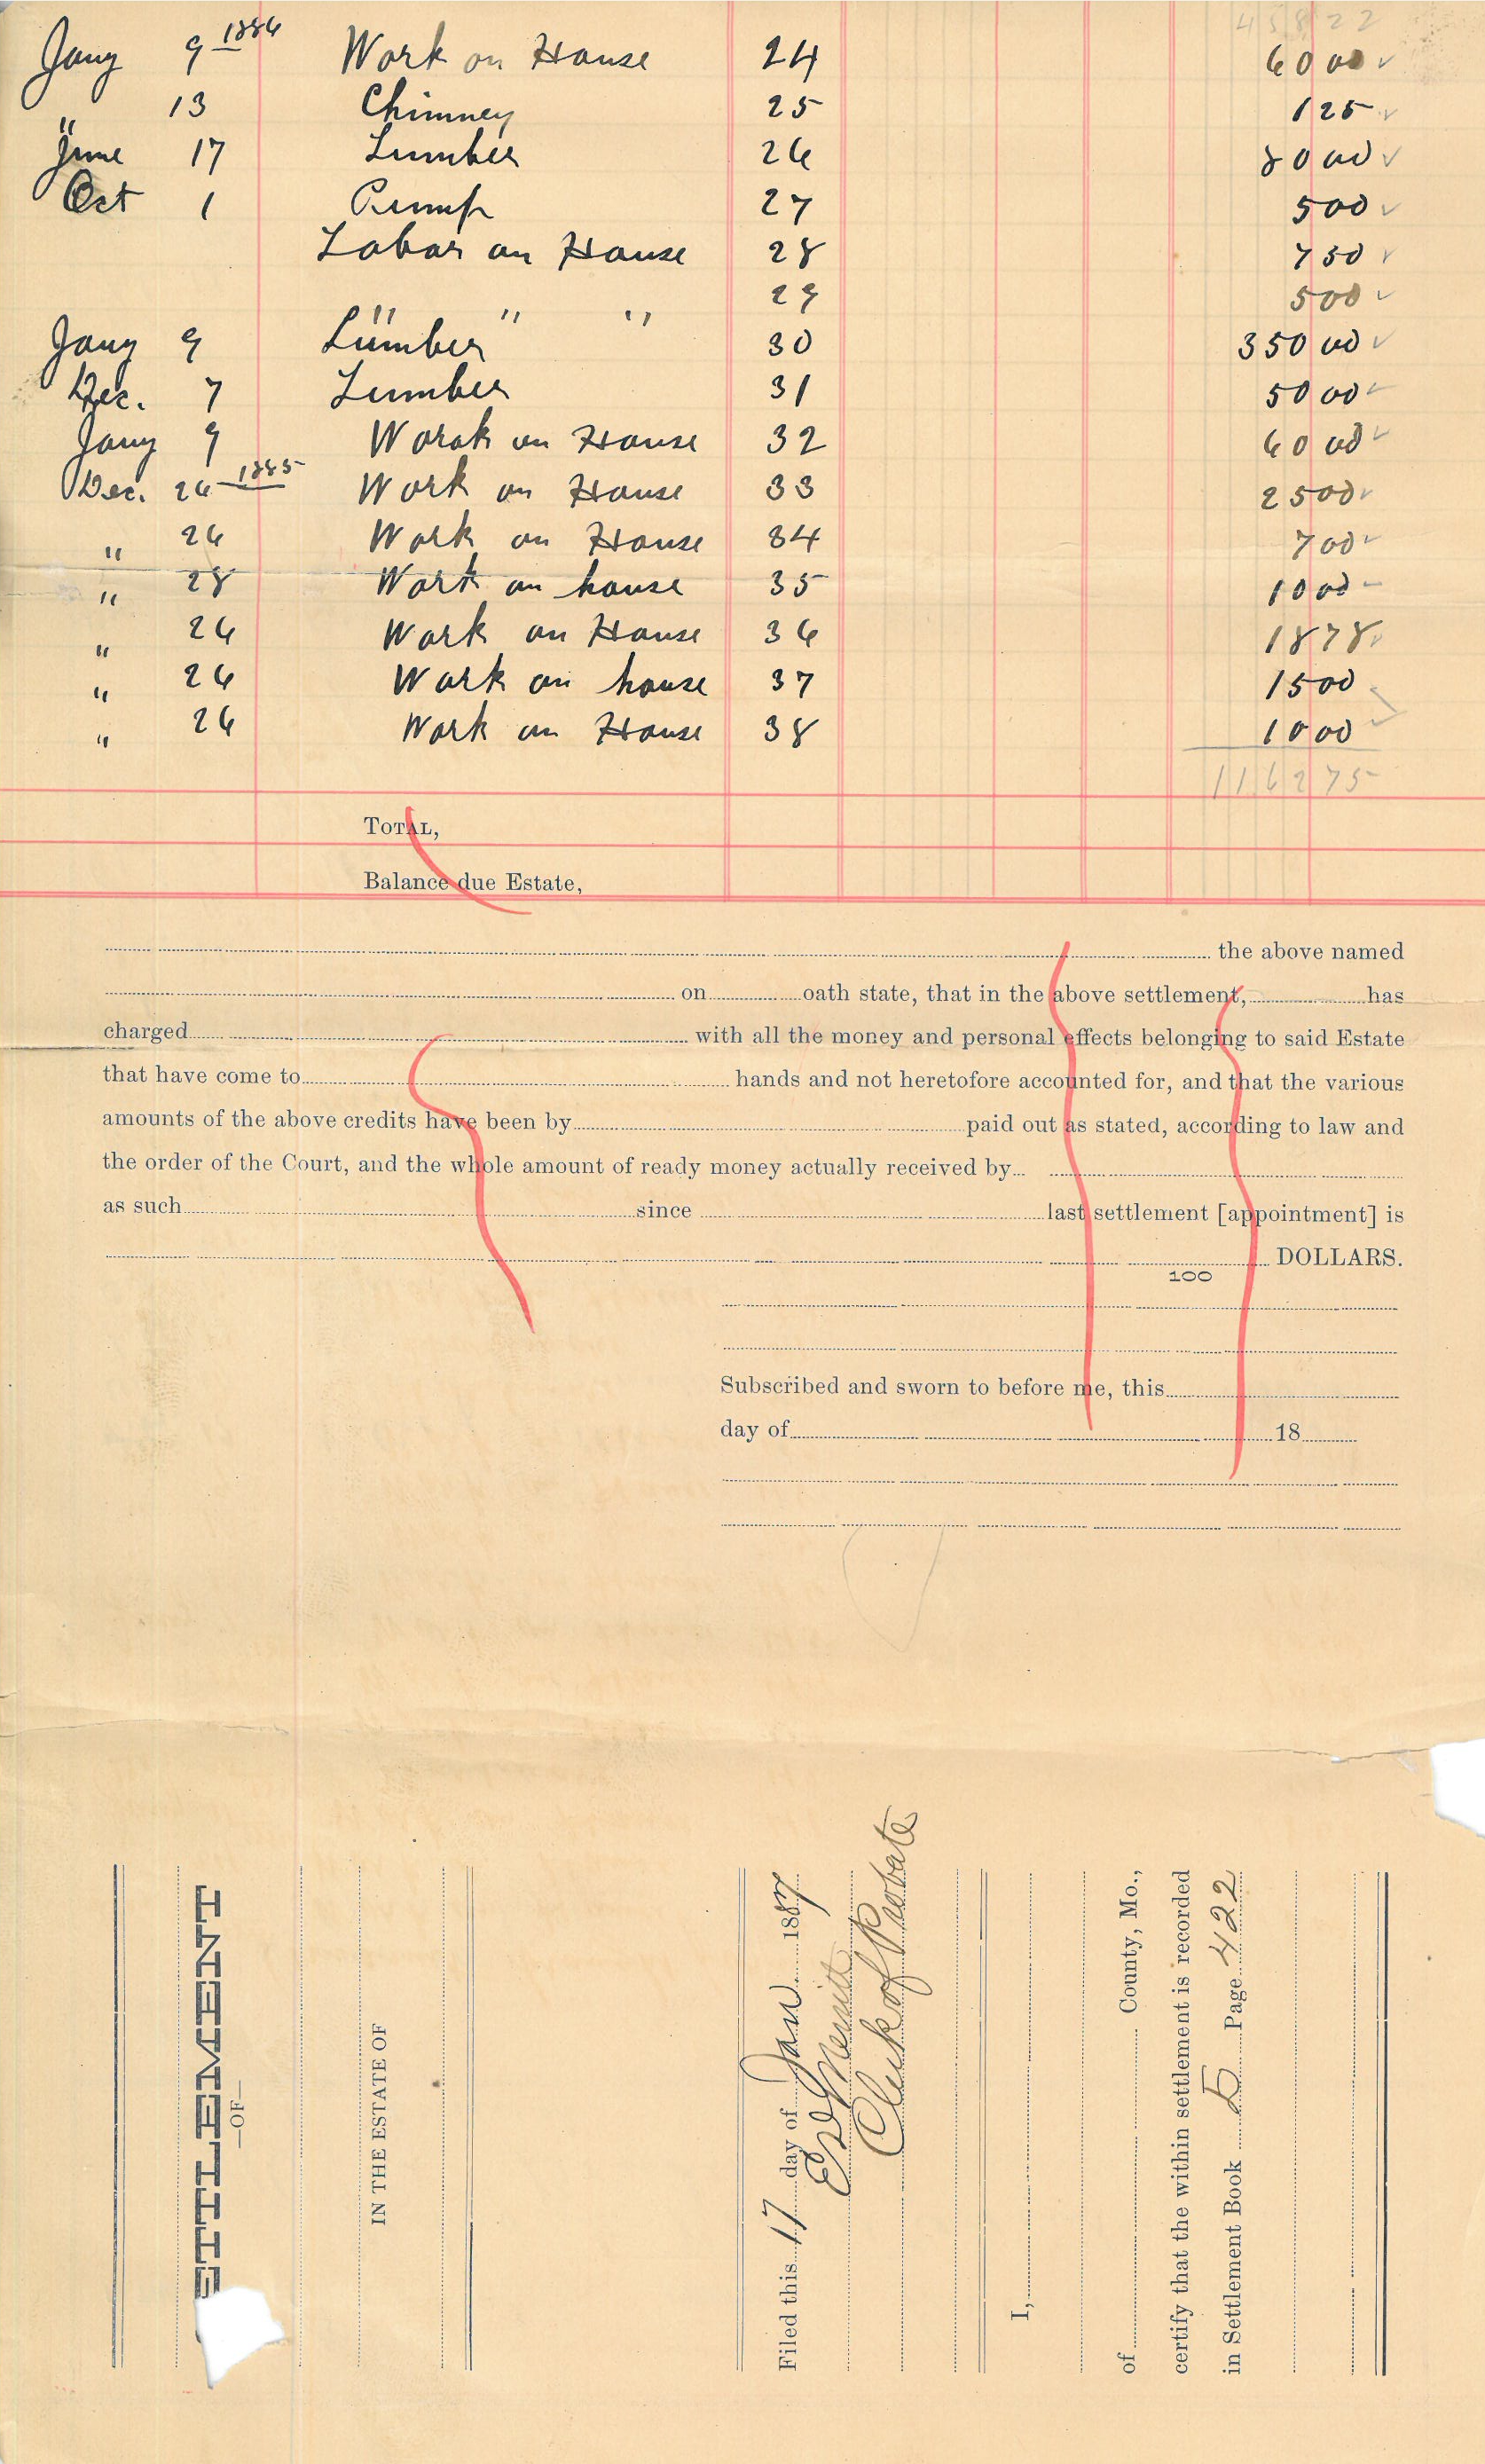 458 22
Jany 9 1886 Work on House 24 60 00 ✓
" 13 Chimney 25 1 25 ✓
June 17 Lumber 26 80 00 ✓
Oct 1 Pump 27 5 00 ✓
Labor on House 28 7 50 ✓
" " " 29 5 00 ✓
Jany 9 Lumber 30 350 00 ✓
Dec. 7 Lumber 31 50 00 ✓
Jany 9 Work on House 32 60 00 ✓
Dec. 26 1885 Work on House 33 25 00 ✓
" 26 Work on House 34 7 00 ✓
" 28 Work on house 35 10 00
" 26 Work on House 36 18 78 ✓
" 26 Work on house 37 15 00 ✓
" 26 Work on House 38 10 00 ✓
1162 75
TOTAL,
Balance due Estate,
the above named
on oath state, that in the above settlement, has
charged with all the money and personal effects belonging to said Estate
that have come to hands and not heretofore accounted for, and that the various
amounts of the above credits have been by paid out as stated, according to law and
the order of the Court, and the whole amount of ready money actually received by
as such since last settlement [appointment] is
DOLLARS.
100
Subscribed and sworn to before me, this
day of 18
ETTLEMENT
—OF—
IN THE ESTATE OF
Filed this 17 day of Jan 1887
Ed Merritt
Clerk of Probate
I,
of County, Mo.,
certify that the within settlement is recorded
in Settlement Book D Page 422